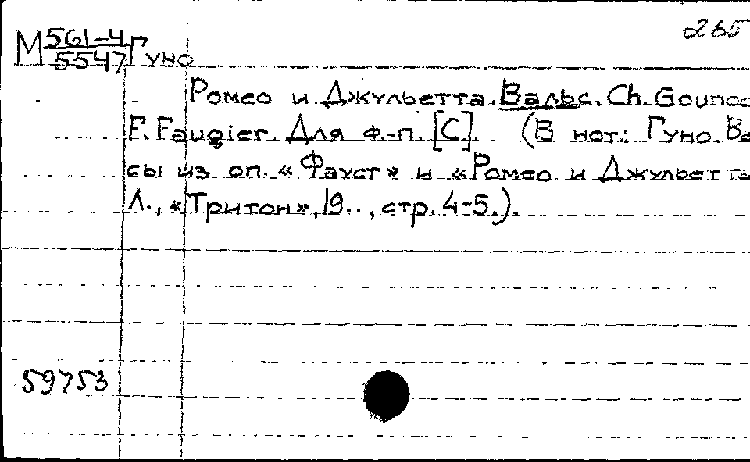 265
М 561-4/5547 Гуно
Ромео и Джульетта. Вальс. Ch. Gouno
F. Faugier. Для ф.-п. [C]. (В нот: Гуно. Ва
сы из оп. «Фауст» и «Ромео и Джульетт
Л., «Тритон», 19.., стр. 4-5.).
59753